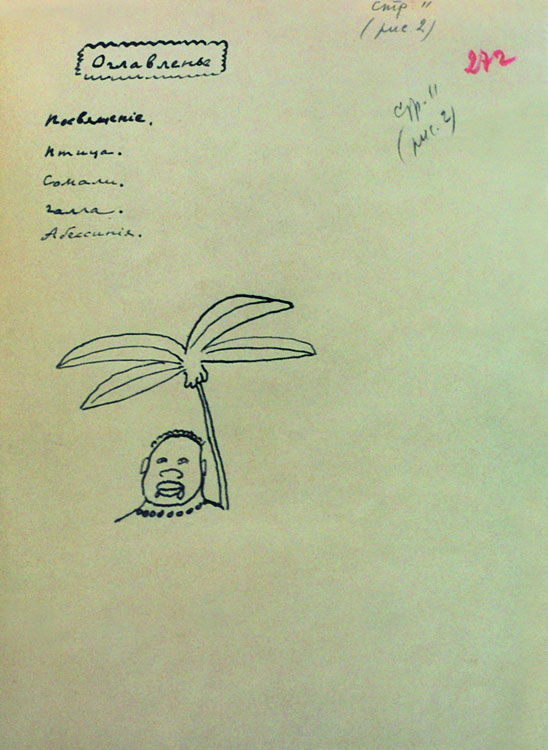 стр. 11
(рис 2)
272
Оглавленье
стр. 11
(рис. 2)
Посвященіе.
Птица.
Сомали.
Галла.
Абессинія.